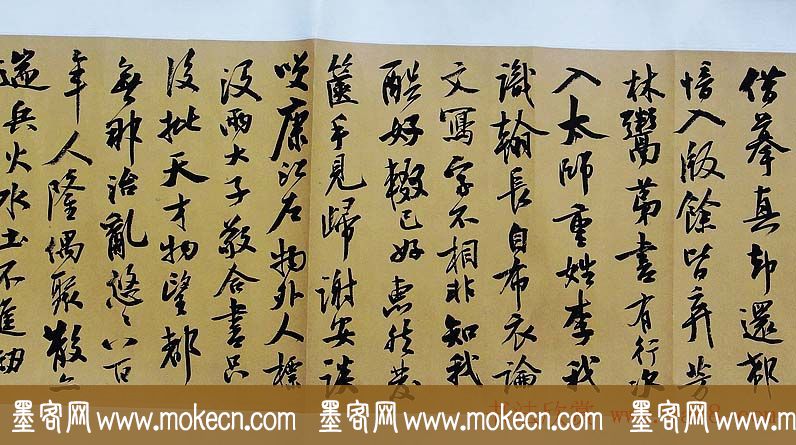 借摹真却還郗
愔入版餘皆弃芳
林鬻第書有行次
入太師重姓李我
識翰長自布衣論
文寫字不相非知我
酷好輟己好惠然發
篋手見歸謝安談
咲康江左物外人標
没兩大子敬合書只
後批天才物望都
無那治亂悠悠八百
年人隆偶聚散
遂兵火水土不進劫
墨客网www.mokecn.com 墨客网www.mokecn.com 墨客网www.mokecn.com